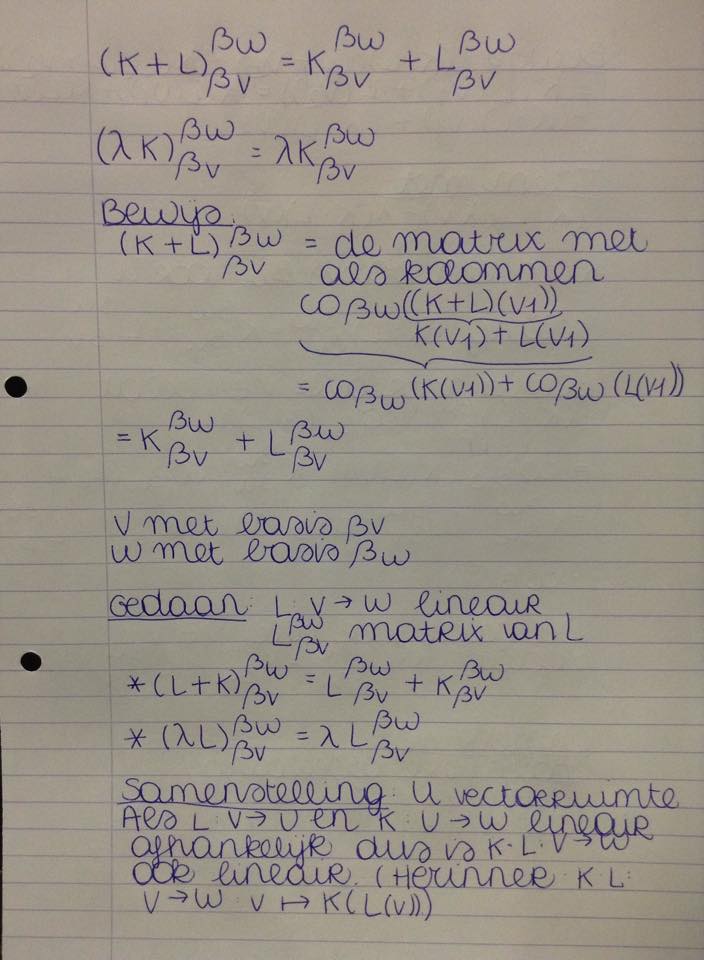 (K+L)_{βV}^{βW} = K_{βV}^{βW} + L_{βV}^{βW}
(λK)_{βV}^{βW} = λK_{βV}^{βW}
Bewijs.
(K+L)_{βV}^{βW} = de matrix met
als kolommen
co_{βW}((K+L)(v1))
K(v1) + L(v1)
= co_{βW}(K(v1)) + co_{βW}(L(v1))
= K_{βV}^{βW} + L_{βV}^{βW}
V met basis βV
W met basis βW
Gedaan: L: V → W lineair
L_{βV}^{βW} matrix van L
* (L+K)_{βV}^{βW} = L_{βV}^{βW} + K_{βV}^{βW}
* (λL)_{βV}^{βW} = λL_{βV}^{βW}
Samenstelling: U vectorruimte
Als L: V → U en K: U → W lineair
afhankelijk dus is K·L: V → W
ook lineair. (Herinner K·L:
V → W: v ↦ K(L(v)))